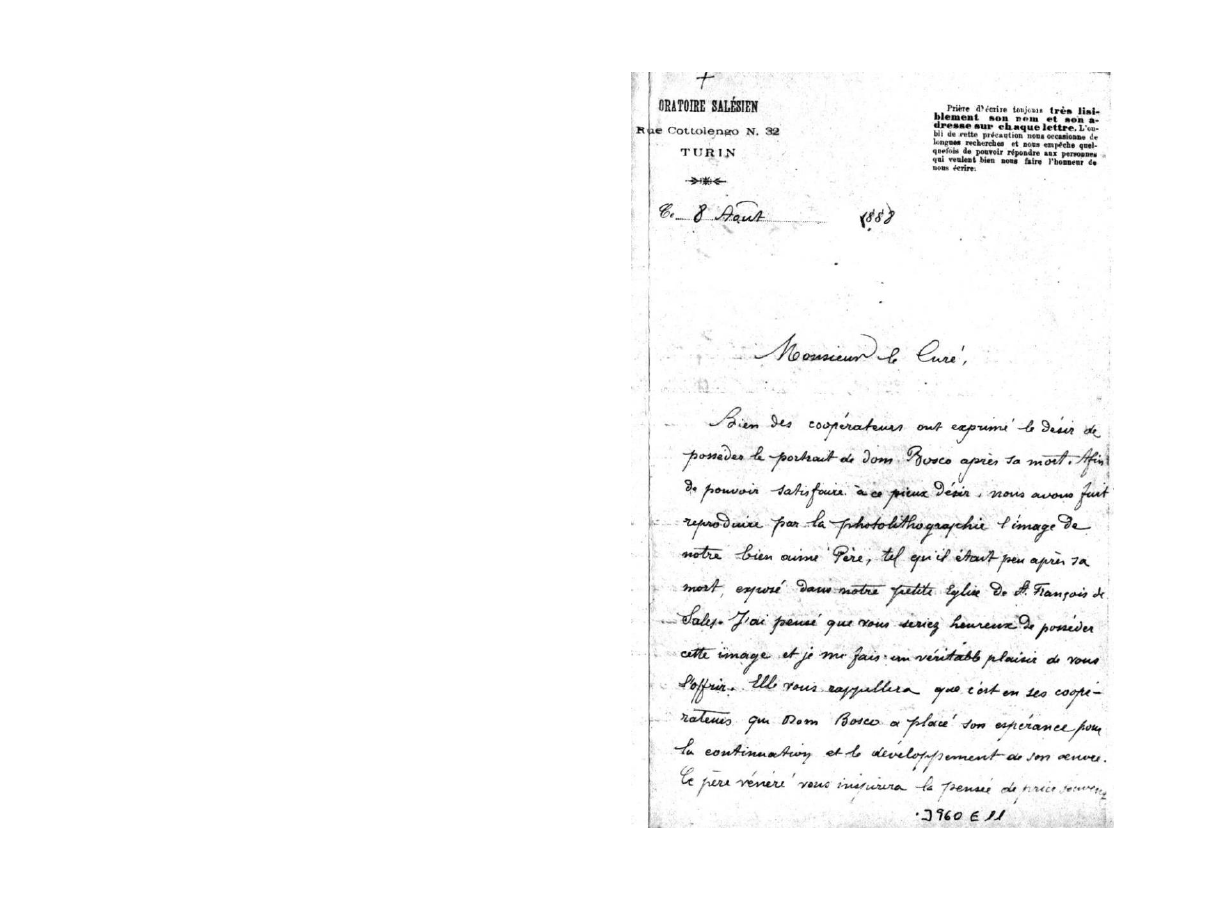 ORATOIRE SALÉSIEN
Rue Cottolengo N. 32
TURIN
Prière d'écrire toujours très lisi-
blement son nom et son a-
dresse sur chaque lettre. L'ou-
bli de cette précaution nous occasionne de
longues recherches et nous empêche quel-
quefois de pouvoir répondre aux personnes
qui veulent bien nous faire l'honneur de
nous écrire.
Ce 8 Août 1888
Monsieur le Curé,
Bien des coopérateurs ont exprimé le désir de
posséder le portrait de dom Bosco après sa mort. Afin
de pouvoir satisfaire à ce pieux désir, nous avons fait
reproduire par la photolithographie l'image de
notre bien aimé Père, tel qu'il était peu après sa
mort, exposé dans notre petite Eglise de St. François de
Sales. J'ai pensé que vous seriez heureux de posséder
cette image et je me fais un véritable plaisir de vous
l'offrir. Elle vous rappellera que c'est en ses coopé-
rateurs que Dom Bosco a placé son espérance pour
la continuation et le développement de son œuvre.
Ce père vénéré vous inspirera la pensée de prier souvent
J960 E 11